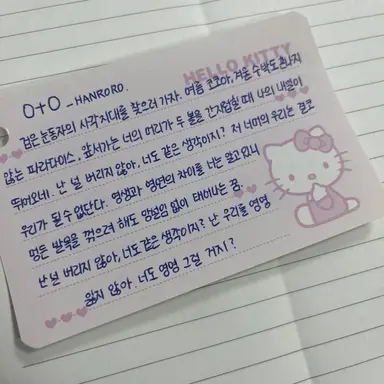 HELLO KITTY
0+0 _ HANRORO.
검은 눈동자의 사각지대를 찾으러 가자. 여름 코코아, 겨울 수박도 혼나지
않는 파라다이스. 앞서가는 너의 머리가 두 볼을 간지럽힐 때 나의 내일이
뛰어오네. 난 널 버리지 않아. 너도 같은 생각이지? 저 너머의 우리는 결코
우리가 될 수 없단다. 영생과 영면의 차이를 너는 알고 있니
멍든 발목을 꺾으려 해도 망설임 없이 태어나는 꿈.
난 널 버리지 않아, 너도 같은 생각이지? 난 우리를 영영
잃지 않아. 너도 영영 그럴 거지?